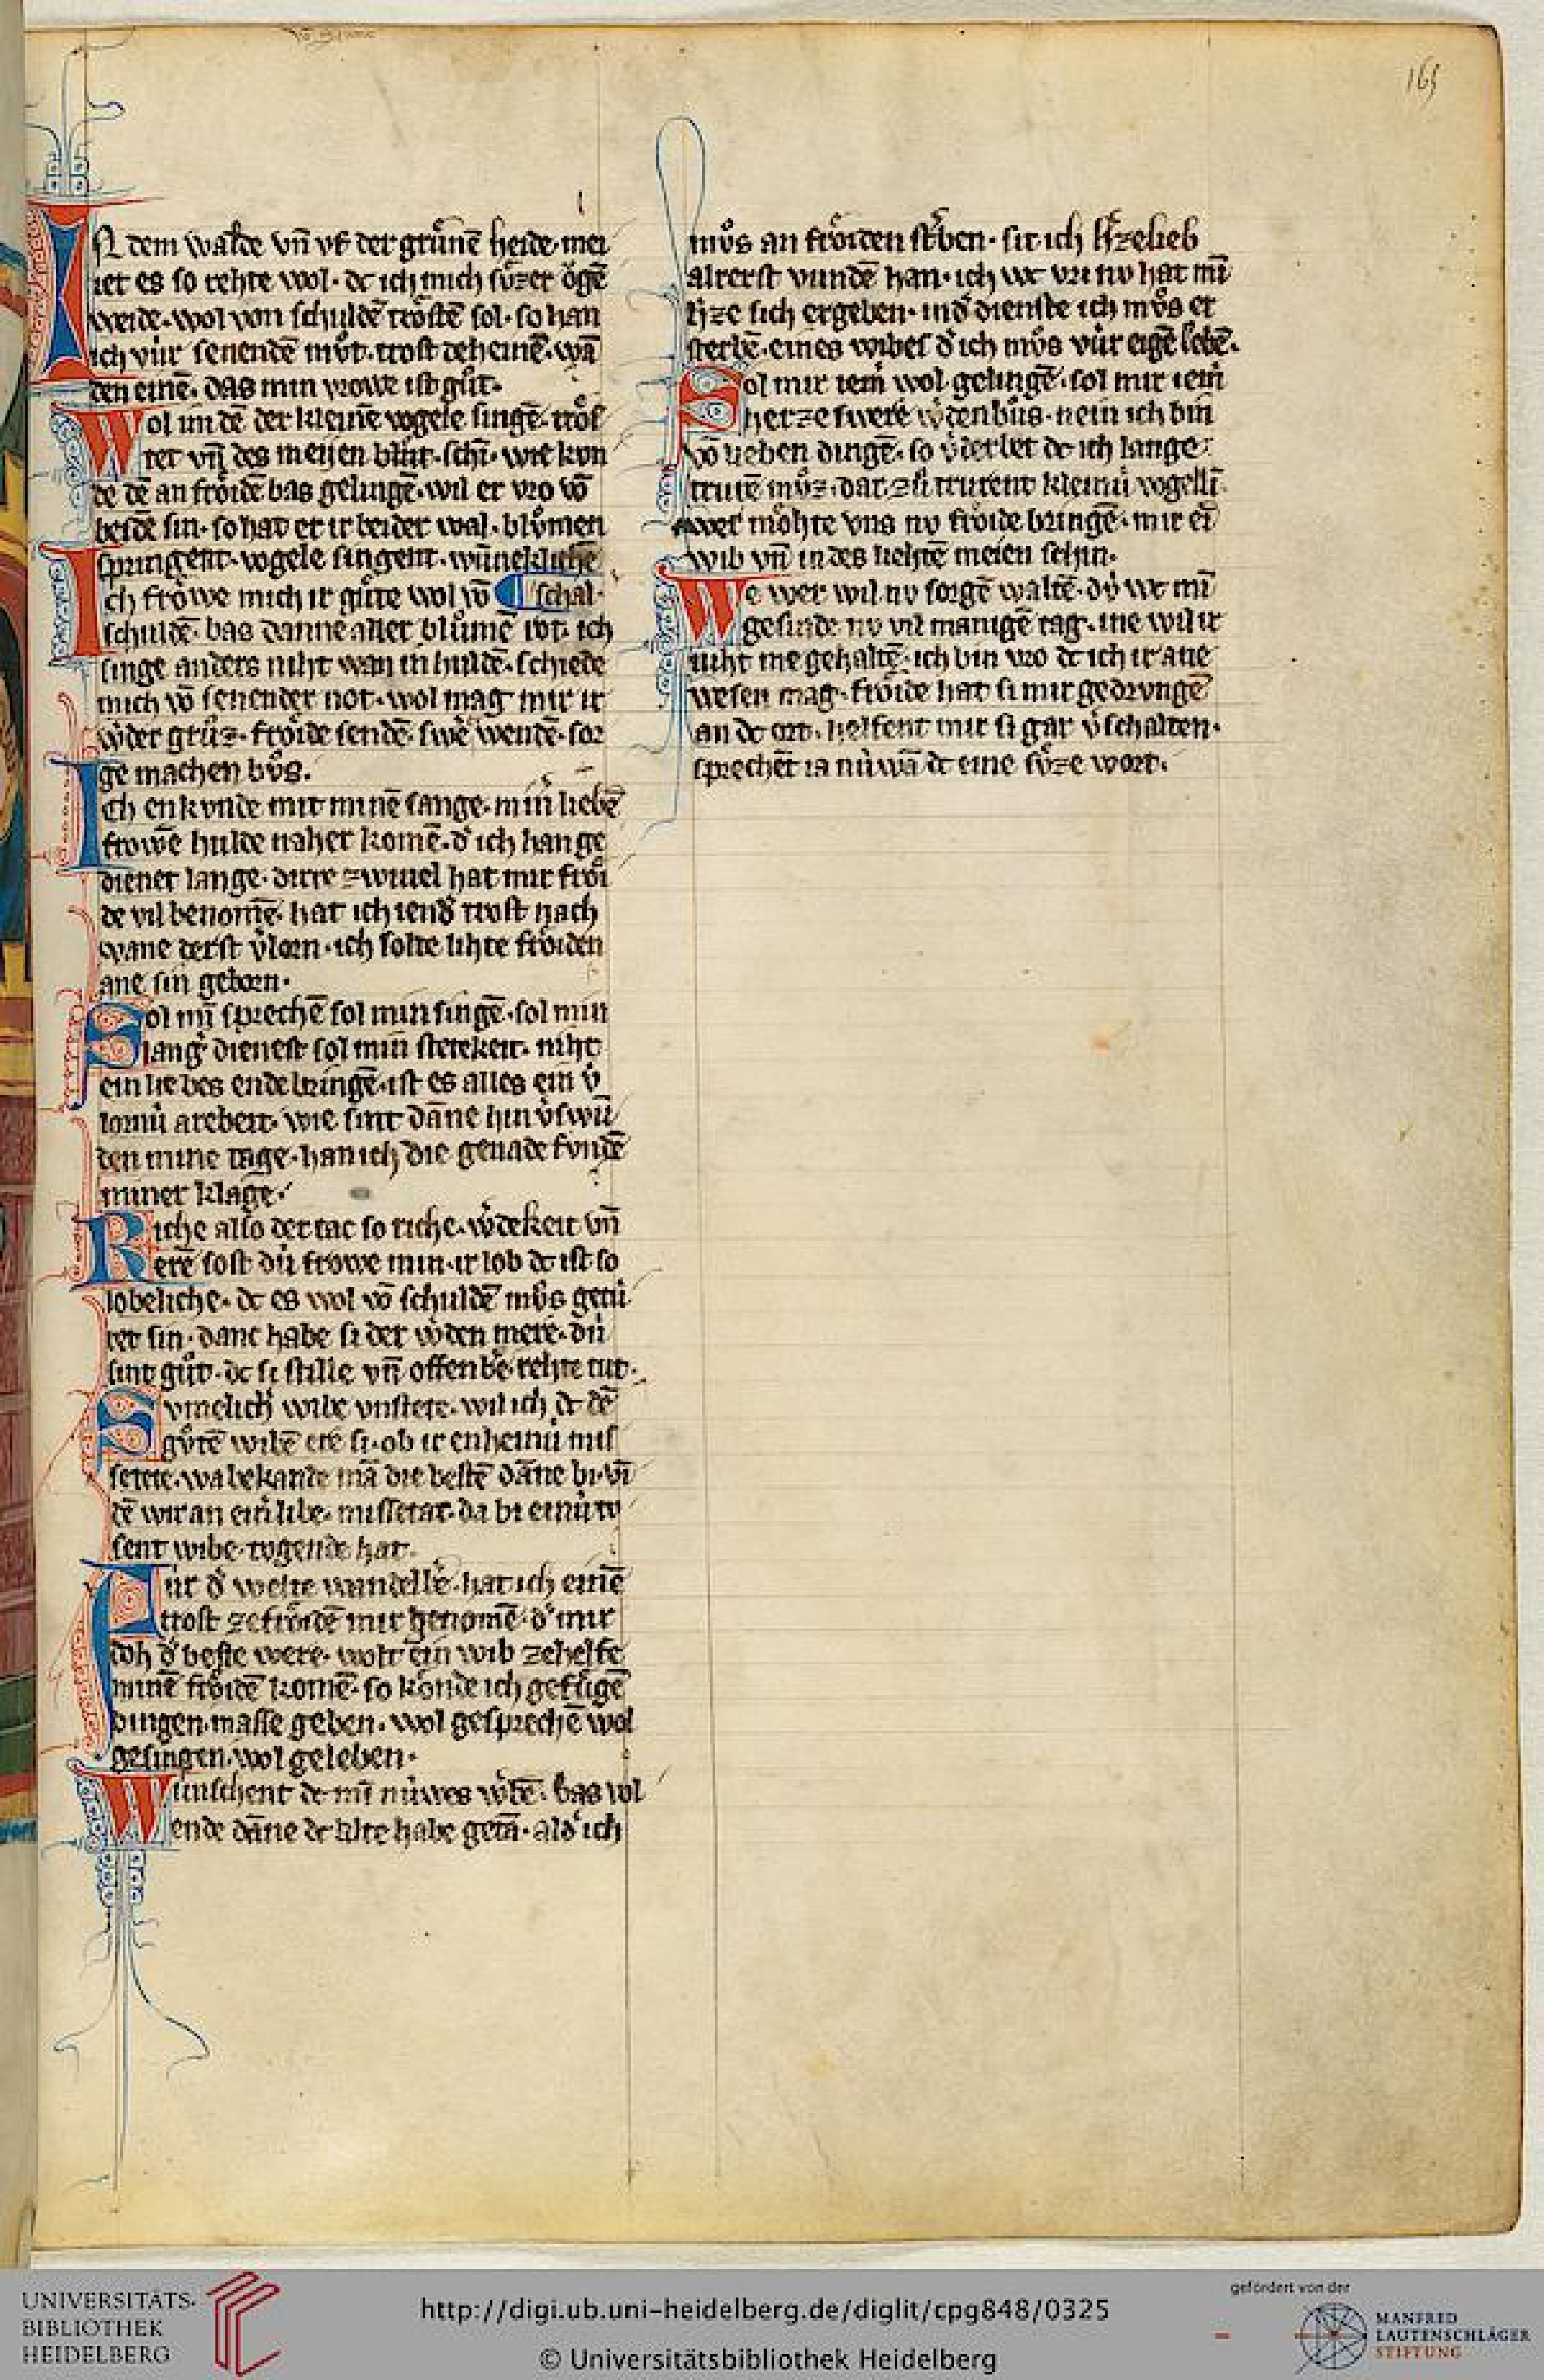 165
IN dem walde vn̄ vf der grůnē heide mei
iet es so rehte wol· dc ich mich sůzer ǒgē
weide· wol von schuldē trǒstē sol· so han
ich vúr senendē můt· trost deheinē· wā
den einē· das min vrowe ist gůt·
Wol im dē der kleine vogele singē· trǒs
tet vn̄ des meijen blůt· schī· wie kvn
de dē an frǒidē bas gelingē· wil er vro vō
beidē sin· so hat er ir beider wal· blůmen
springent· vogele singent· wūneklichē
schal·
Ich frǒwe mich ir gůte wol vō
schuldē· bas danne aller blůmē rot· ich
singe anders niht wan in huldē· schiede
mich vō senender not· wol mag mir ir
w̓der grůz· frǒide sendē· swē wendē· sor
ge machen bůs.
Ich enkvnde mit minē sange· min̓ liebē
frowē hulde naher komē· d̓ ich han ge
dienet lange· dirre zwiuel hat mir frǒi
de vil benomē· hat ich iend̓ trost nach
wane derst v̓lorn· ich solte lihte frǒiden
ane sin geborn·
Sol mī sprechē sol min singē· sol min
lang̓ dienest sol min stetekeit· niht
ein liebes ende bringē· ist es alles ein v̓
lornú arebeit· wie sint dāne hin v̓swū
den mine tage· han ich die genade fvndē
miner klage·
Riche also der tac so riche· w̓dekeit vn̄
erē sost dú frowe min· ir lob dc ist so
lobeliche· dc es wol vō schuldē můs getú
ret sin· danc habe si der w̓den mere· dú
sint gůt· dc si stille vn̄ offenbe̓ rehte tůt·
Svmelich̓ wibe vnstete· wil ich dc dē
gůtē wibē ere si· ob ir enheinú mis
setete· wa bekande mā die bestē dāne bi· vī
dē wir an eim̓ libe· missetat· da bi einú tv
sent wibe· tvgende hat·
Fúr d̓ welte wandelbe̓· hat ich einē
trost ze frǒidē mir genomē· d̓ mir
doh d̓ beste were· wolt ein wib ze helfe
minē frǒidē komē· so kǒnde ich gefůgē
dingen· masse geben· wol gesprechē wol
gesingen· wol geleben·
Wúnschent dc mī núwes w̓bē· bas vol
ende dāne dc alte habe getā· ald̓ ich
můs an frǒiden st̓ben· sit ich h̓zelieb
alrerst vundē han· ich wc vri nv hat mī
h̓ze sich ergeben· in d̓ dienste ich můs er
sterbē· eines wibes d̓ ich můs vúr eigē lebē·
Sol mir iem̓ wol gelingē· sol mir iem̓
herze swere w̓den bůs· nein ich bin
vō lieben dingē· so v̓derbet dc ich lange
trurē můz· dar zů trurent kleinú vogellī·
wer mǒhte vns nv frǒide bringē· mir eī
wib vn̄ in des liehtē meien schin·
We wer wil nv sorgē waltē· dú wc mī
gesinde nv vil manigē tag· ine wil ir
niht me gehaltē· ich bin vro dc ich ir ane
wesen mag· frǒide hat si mir gedrvngē
an dc ort· helfent mir si gar v̓schalten·
sprechēt ia núwā dc eine sůze wort·
UNIVERSITÄTS-
BIBLIOTHEK
HEIDELBERG
http://digi.ub.uni-heidelberg.de/diglit/cpg848/0325
© Universitätsbibliothek Heidelberg
gefördert von der
MANFRED
LAUTENSCHLÄGER
STIFTUNG